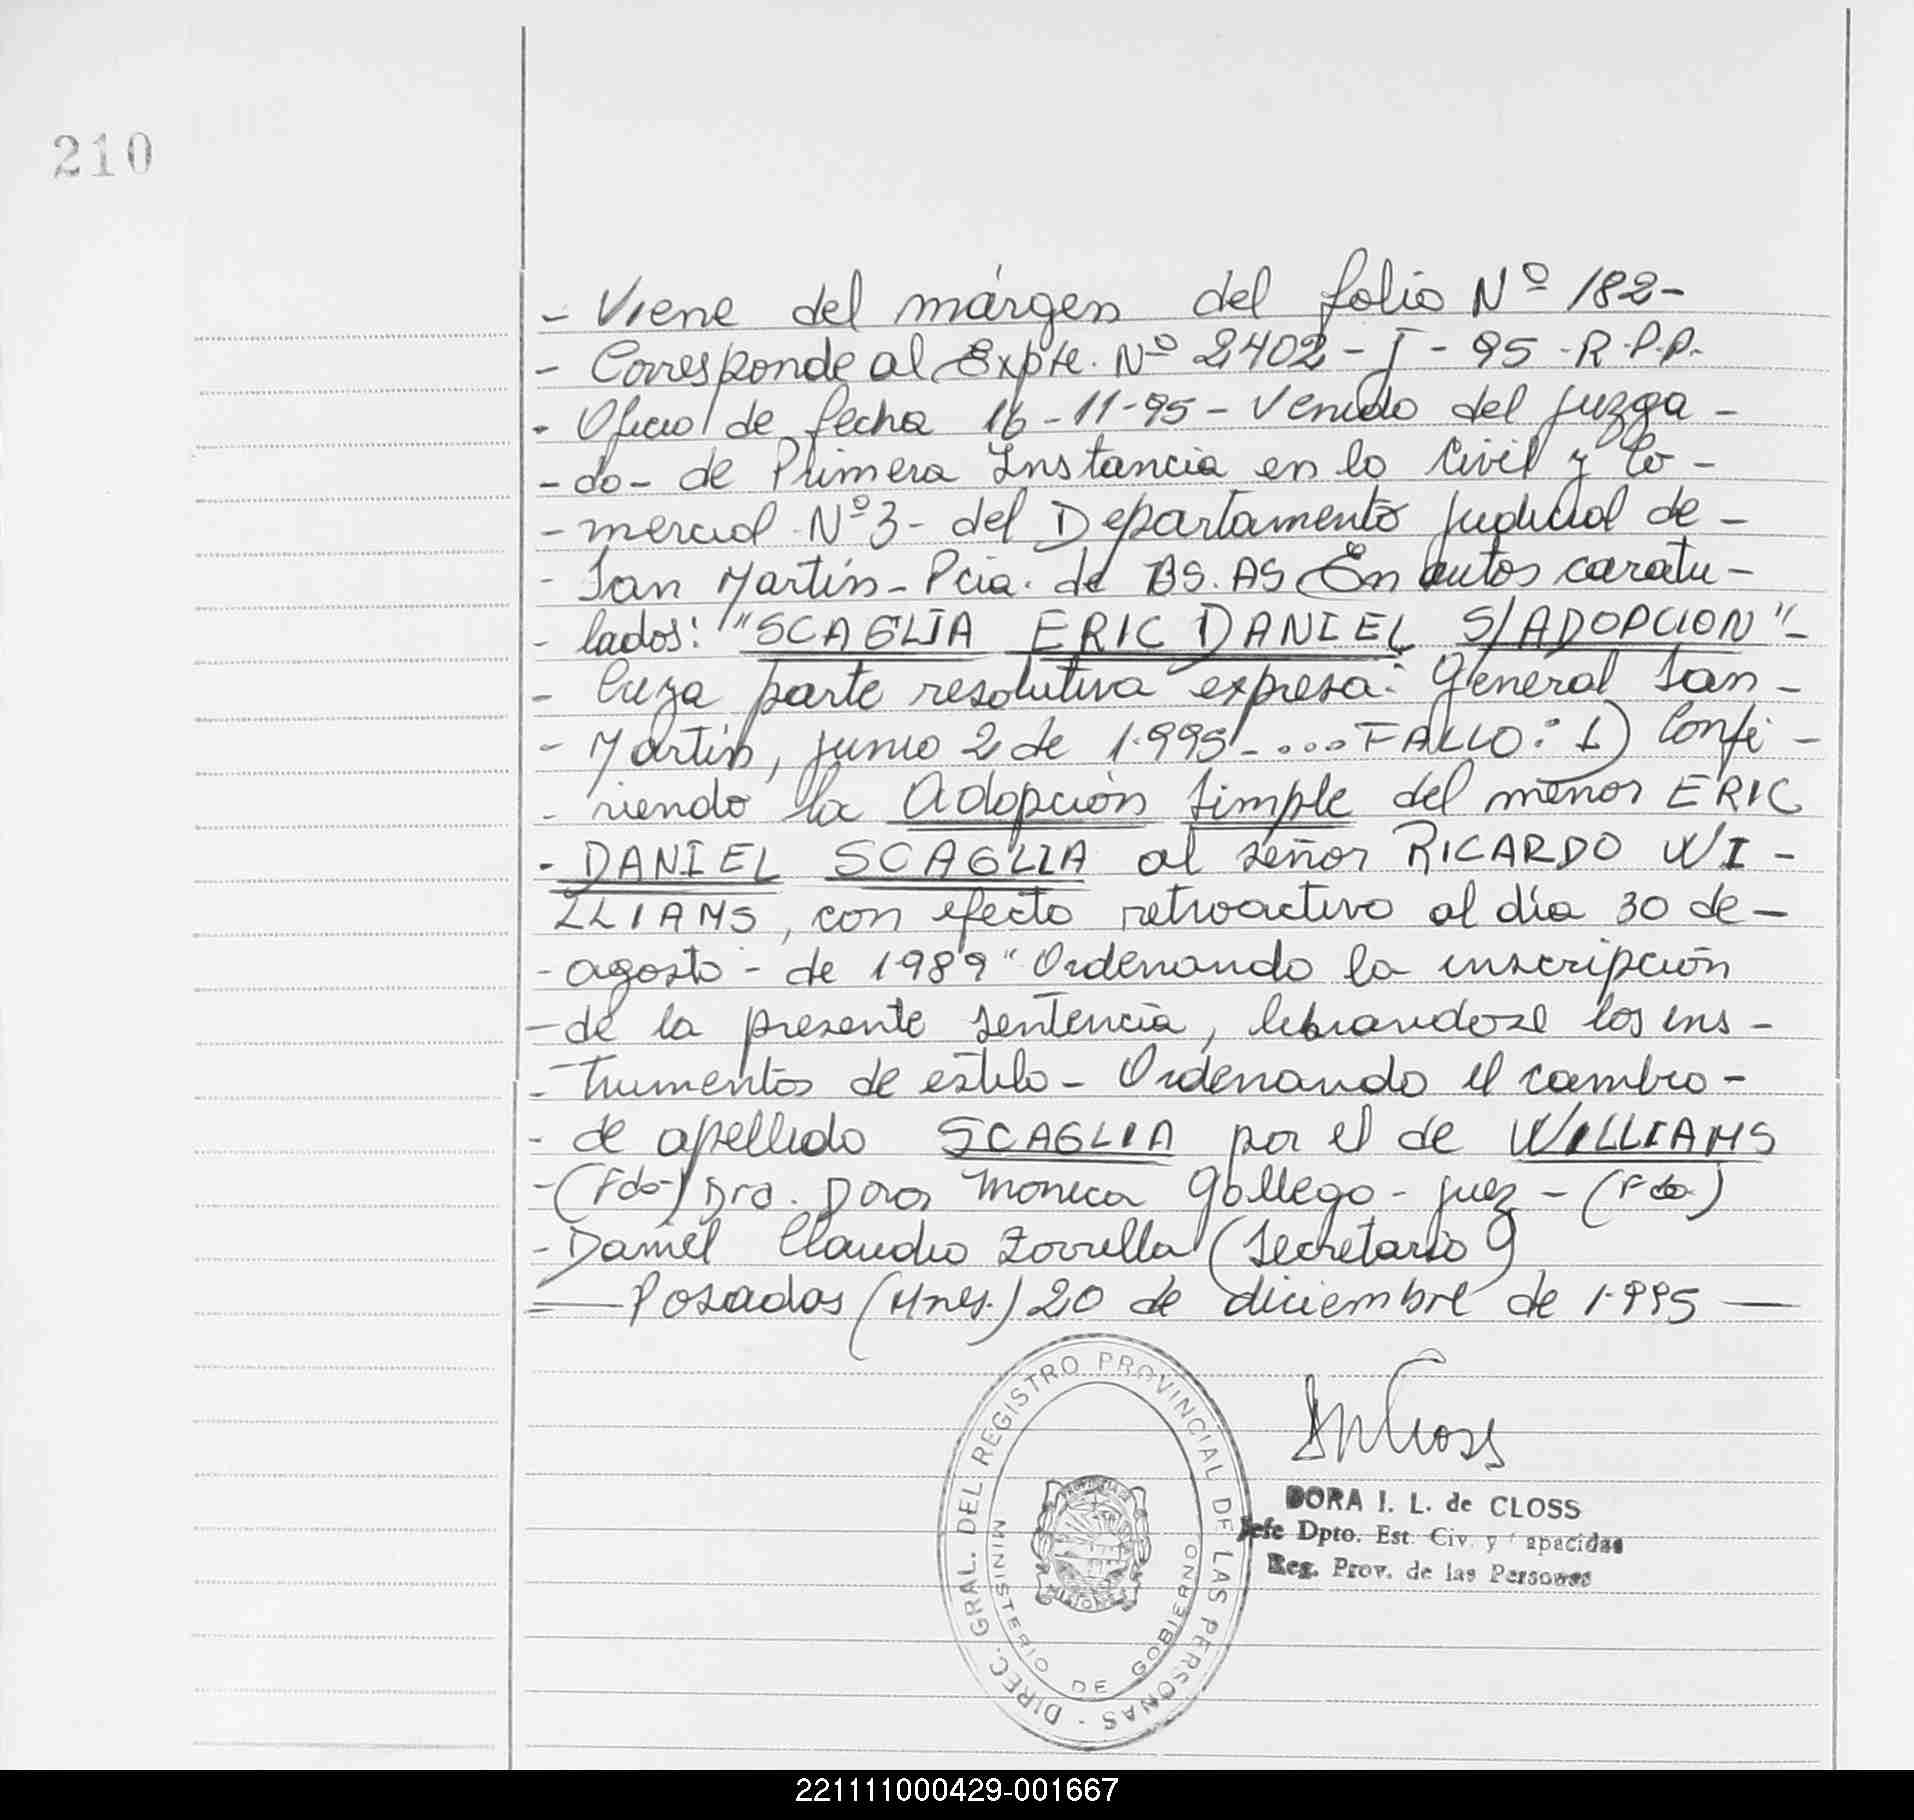 210
- Viene del márgen del folio Nº 182-
- Corresponde al Expte. Nº 2402 - J - 95 - R.P.P.
- Oficio de fecha 16-11-95 - Venido del juzga -
- do - de Primera Instancia en lo Civil y Co -
- mercial Nº 3 - del Departamento judicial de -
- San Martín - Pcia. de BS. AS En autos caratu -
- lados: "SCAGLIA ERIC DANIEL S/ADOPCION" -
- Cuya parte resolutiva expresa: General San -
- Martín, junio 2 de 1.995 - .... FALLO: 1) Confi -
- riendo la Adopción Simple del menor ERIC
- DANIEL SCAGLIA al señor RICARDO WI -
LLIAMS, con efecto retroactivo al día 30 de -
- agosto - de 1989" Ordenando la inscripción
- de la presente sentencia, librandose los ins -
- trumentos de estilo - Ordenando el cambio -
- de apellido SCAGLIA por el de WILLIAMS
- (Fdo-) Dra. Dora Monica Gallego - juez - (Fdo)
- Daniel Claudio Zorrilla (Secretario)
— Posadas (Mnes.) 20 de diciembre de 1.995 —
DIREC. GRAL. DEL REGISTRO PROVINCIAL DE LAS PERSONAS -
MINISTERIO DE GOBIERNO
DORA I. L. de CLOSS
Jefe Dpto. Est. Civ. y apacidad
Reg. Prov. de las Personas
221111000429-001667